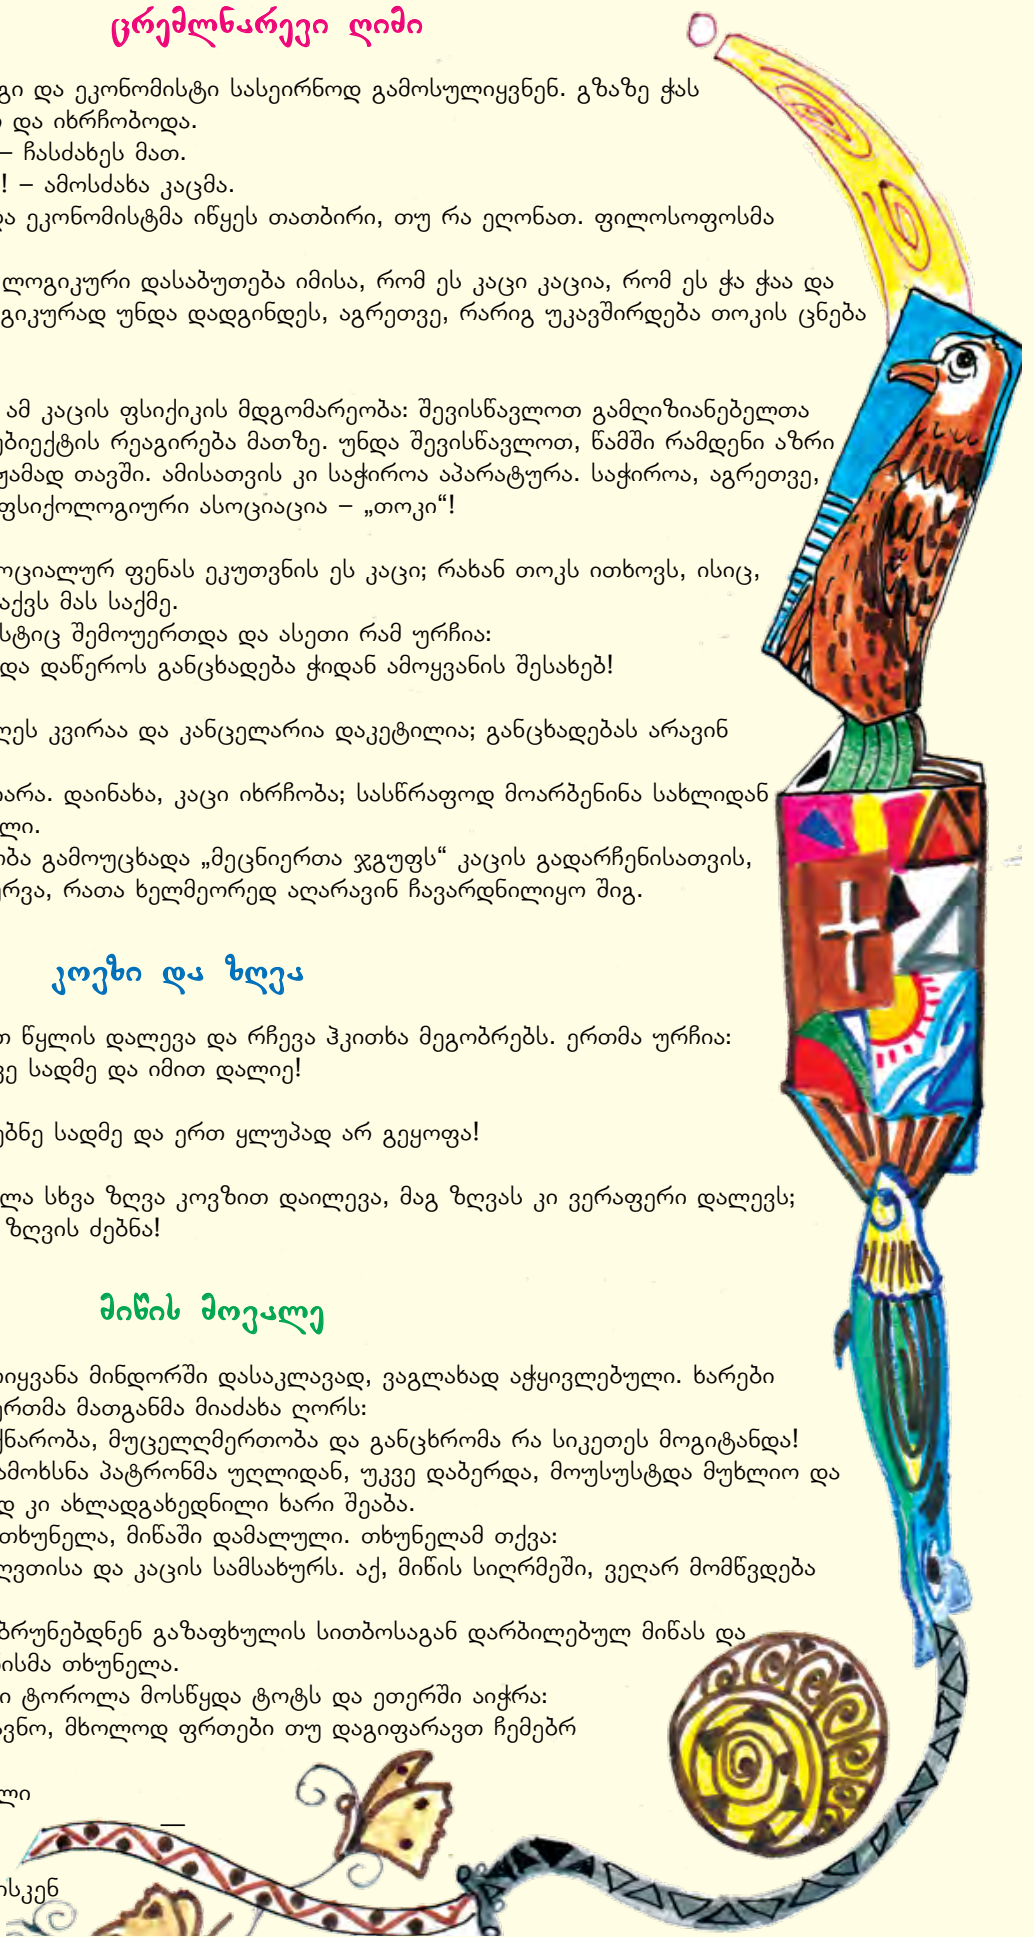 ცრემლნარევი ღიმი
გი და ეკონომისტი სასეირნოდ გამოსულიყვნენ. გზაზე ჭას
და იხრჩობოდა.
– ჩასძახეს მათ.
! – ამოსძახა კაცმა.
და ეკონომისტმა იწყეს თათბირი, თუ რა ეღონათ. ფილოსოფოსმა
ლოგიკური დასაბუთება იმისა, რომ ეს კაცი კაცია, რომ ეს ჭა ჭაა და
გიკურად უნდა დადგინდეს, აგრეთვე, რარიგ უკავშირდება თოკის ცნება
ამ კაცის ფსიქიკის მდგომარეობა: შევისწავლოთ გამღიზიანებელთა
უბიექტის რეაგირება მათზე. უნდა შევისწავლოთ, წამში რამდენი აზრი
ჟამად თავში. ამისათვის კი საჭიროა აპარატურა. საჭიროა, აგრეთვე,
ფსიქოლოგიური ასოციაცია – „თოკი“!
ოციალურ ფენას ეკუთვნის ეს კაცი; რახან თოკს ითხოვს, ისიც,
აქვს მას საქმე.
სტიც შემოუერთდა და ასეთი რამ ურჩია:
და დაწეროს განცხადება ჭიდან ამოყვანის შესახებ!
ღეს კვირაა და კანცელარია დაკეტილია; განცხადებას არავინ
იარა. დაინახა, კაცი იხრჩობა; სასწრაფოდ მოარბენინა სახლიდან
ლი.
ობა გამოუცხადა „მეცნიერთა ჯგუფს“ კაცის გადარჩენისათვის,
ურვა, რათა ხელმეორედ აღარავინ ჩავარდნილიყო შიგ.
კოვზი და ზღვა
თ წყლის დალევა და რჩევა ჰკითხა მეგობრებს. ერთმა ურჩია:
ვე სადმე და იმით დალიე!
ებნე სადმე და ერთ ყლუპად არ გეყოფა!
ლა სხვა ზღვა კოვზით დაილევა, მაგ ზღვას კი ვერაფერი დალევს;
ზღვის ძებნა!
მიწის მოვალე
იყვანა მინდორში დასაკლავად, ვაგლახად აჭყივლებული. ხარები
ერთმა მათგანმა მიაძახა ღორს:
ქნარობა, მუცელღმერთობა და განცხრომა რა სიკეთეს მოგიტანდა!
ამოხსნა პატრონმა უღლიდან, უკვე დაბერდა, მოუსუსტდა მუხლიო და
დ კი ახლადგახედნილი ხარი შეაბა.
თხუნელა, მიწაში დამალული. თხუნელამ თქვა:
ღვთისა და კაცის სამსახურს. აქ, მიწის სიღრმეში, ვეღარ მომწვდება
ბრუნებდნენ გაზაფხულის სითბოსაგან დარბილებულ მიწას და
ისმა თხუნელა.
ი ტოროლა მოსწყდა ტოტს და ეთერში აიჭრა:
ავნო, მხოლოდ ფრთები თუ დაგიფარავთ ჩემებრ
ლი
—
ისკენ